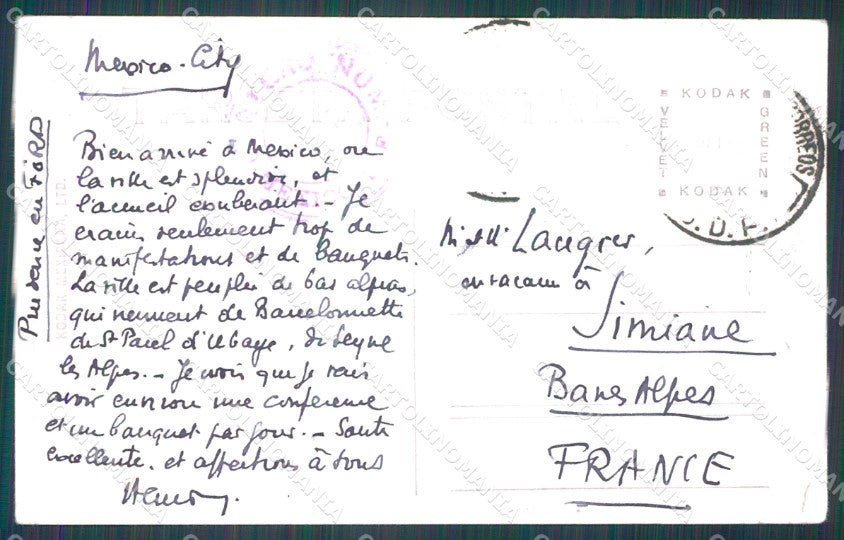 Mexico-City
Bien arrivé à Mexico, où
la ville est splendide, et
l'accueil exubérant. - Je
crains seulement trop de
manifestations et de banquets.
La ville est peuplée de bas alpins,
qui viennent de Barcelonnette
de St Paul d'Ubaye, de Seyne
les Alpes. - Je crois que je vais
avoir environ une conférence
et un banquet par jour. - Santé
excellente. et affections à tous
en FORD
Langres,
en vacances à
Simiane
Basses Alpes
FRANCE
KODAK
VELVET
GREEN
KODAK
CORREOS
D. F.
NUM
CARTOLINOMANIA